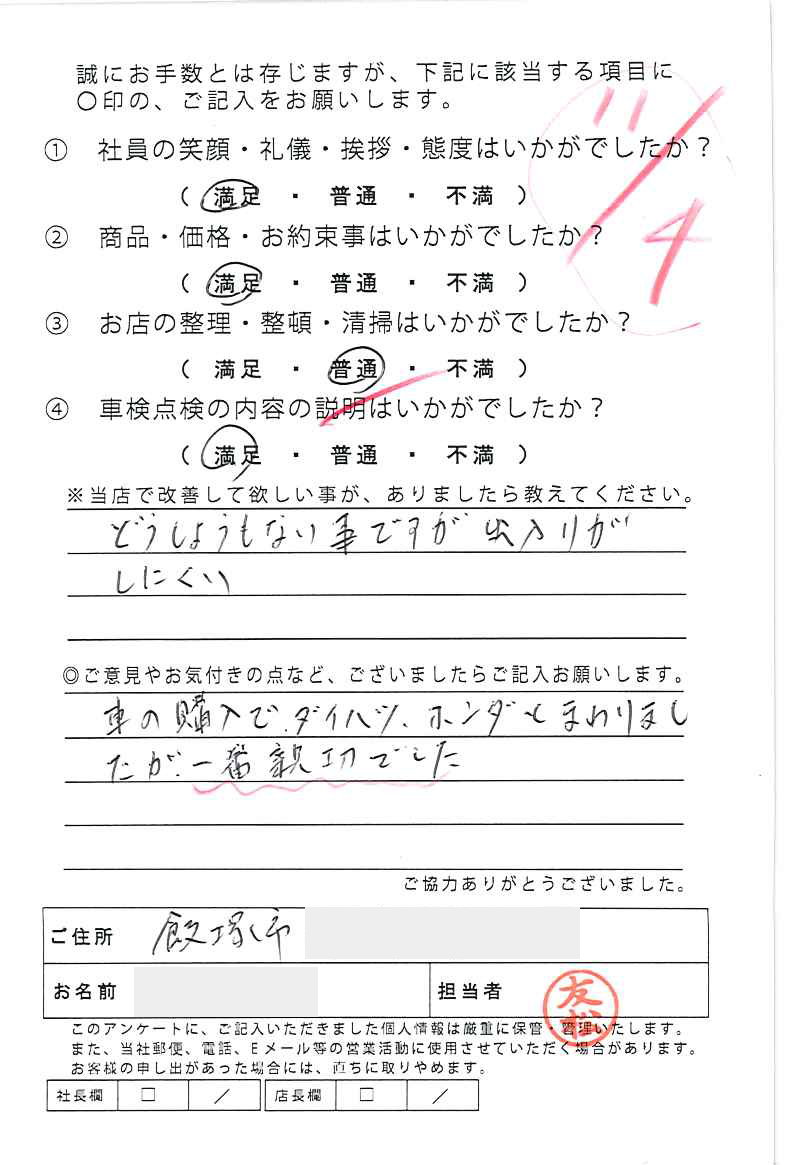 誠にお手数とは存じますが、下記に該当する項目に
〇印の、ご記入をお願いします。
11/4
① 社員の笑顔・礼儀・挨拶・態度はいかがでしたか？
( 満足 ・ 普通 ・ 不満 )
② 商品・価格・お約束事はいかがでしたか？
( 満足 ・ 普通 ・ 不満 )
③ お店の整理・整頓・清掃はいかがでしたか？
( 満足 ・ 普通 ・ 不満 )
④ 車検点検の内容の説明はいかがでしたか？
( 満足 ・ 普通 ・ 不満 )
※当店で改善して欲しい事が、ありましたら教えてください。
どうしようもない事ですが 出入りが
しにくい
◎ご意見やお気付きの点など、ございましたらご記入お願いします。
車の購入で、ダイハツ、ホンダとまわりまし
たが、一番親切でした
ご協力ありがとうございました。
ご住所 飯塚市
お名前 担当者 友松
このアンケートに、ご記入いただきました個人情報は厳重に保管・管理いたします。
また、当社郵便、電話、Eメール等の営業活動に使用させていただく場合があります。
お客様の申し出があった場合には、直ちに取りやめます。
社長欄 □ ／ 店長欄 □ ／